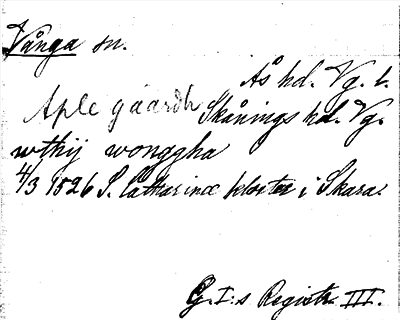 Vånga sn.
Ås hd. Vg. l.
Aplegåardh Skånings hd. Vg.
wthij wonggha
4/3 1526 S. Catharinæ kloster i Skara.
G. I:s Registr. III.